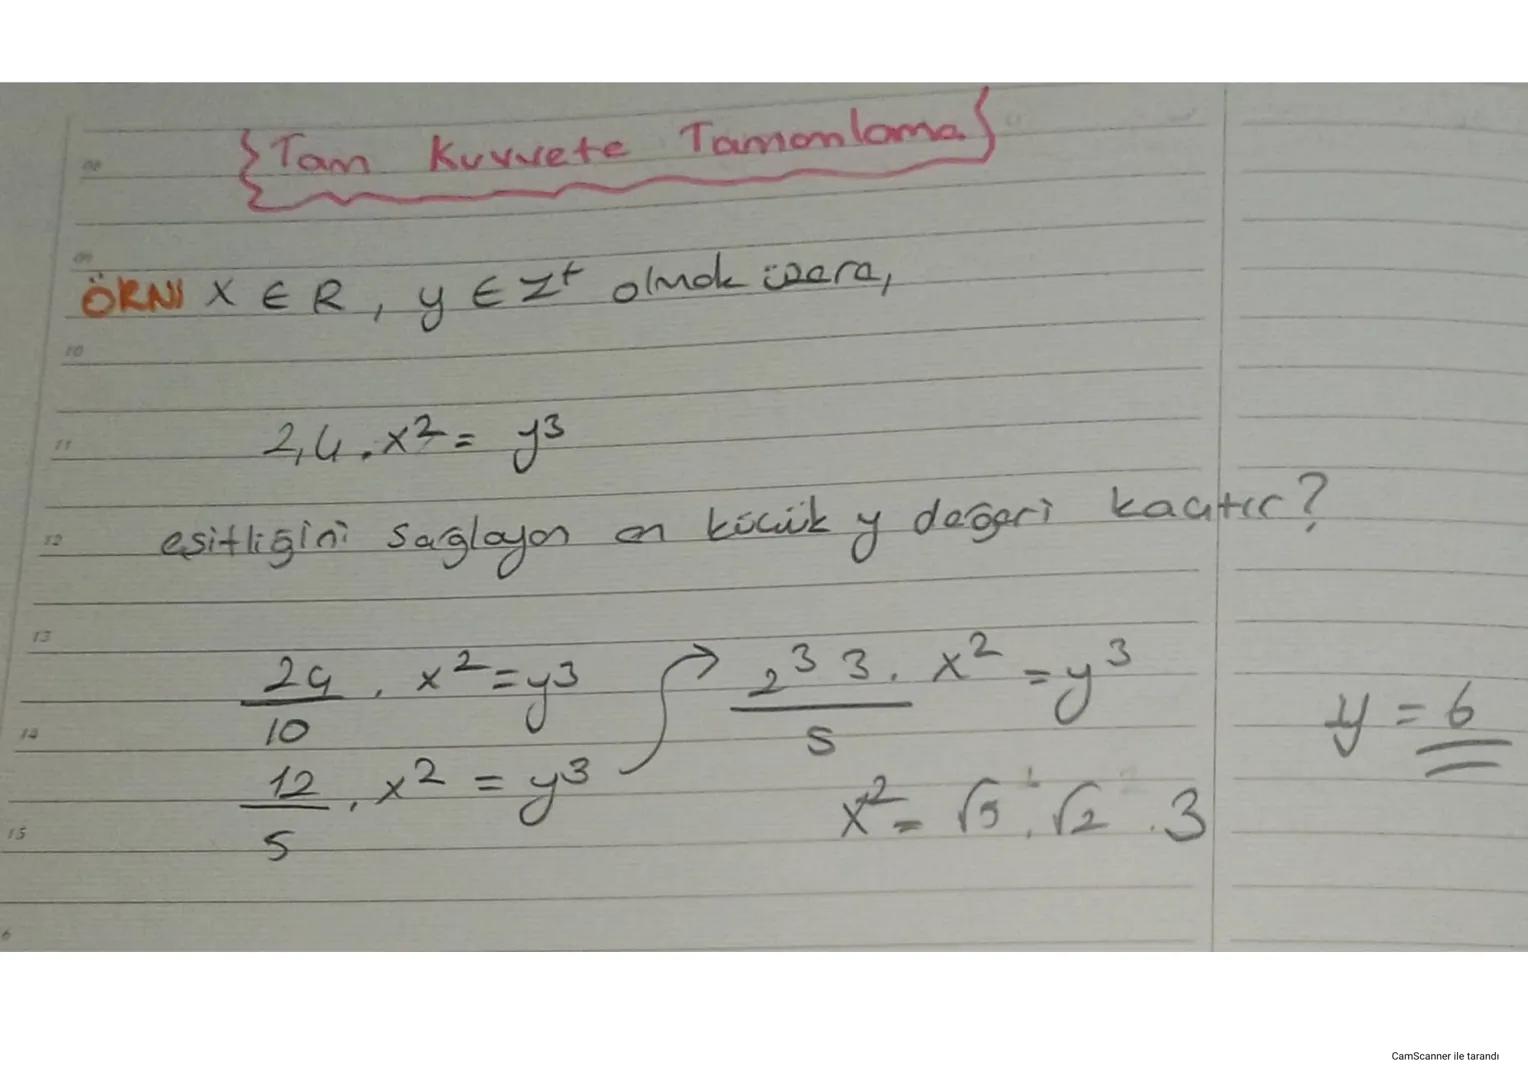 Tam Kuvvete Tamamlama
ÖRN| x ∈ R, y ∈ Z⁺ olmak üzere,
2,4.x² = y³
eşitliğini sağlayan en küçük y değeri kaçtır?
24/10 . x² = y³
12/5 . x² = y³
2³3/5 . x² = y³
x² = √5 . √2 . 3
y = 6
08
09
10
11
12
13
14
15
6
CamScanner ile tarandı